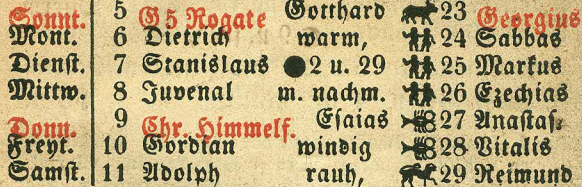 Sonnt. 5 G5 Rogate Gotthard 23 Georgius
Mont. 6 Dietrich warm, 24 Sabbas
Dienst. 7 Stanislaus 2 u. 29 25 Markus
Mittw. 8 Juvenal m. nachm. 26 Ezechias
Donn. 9 Chr. Himmelf. Esaias 27 Anastas.
Freyt. 10 Gordian windig 28 Vitalis
Samst. 11 Adolph rauh, 29 Reimund